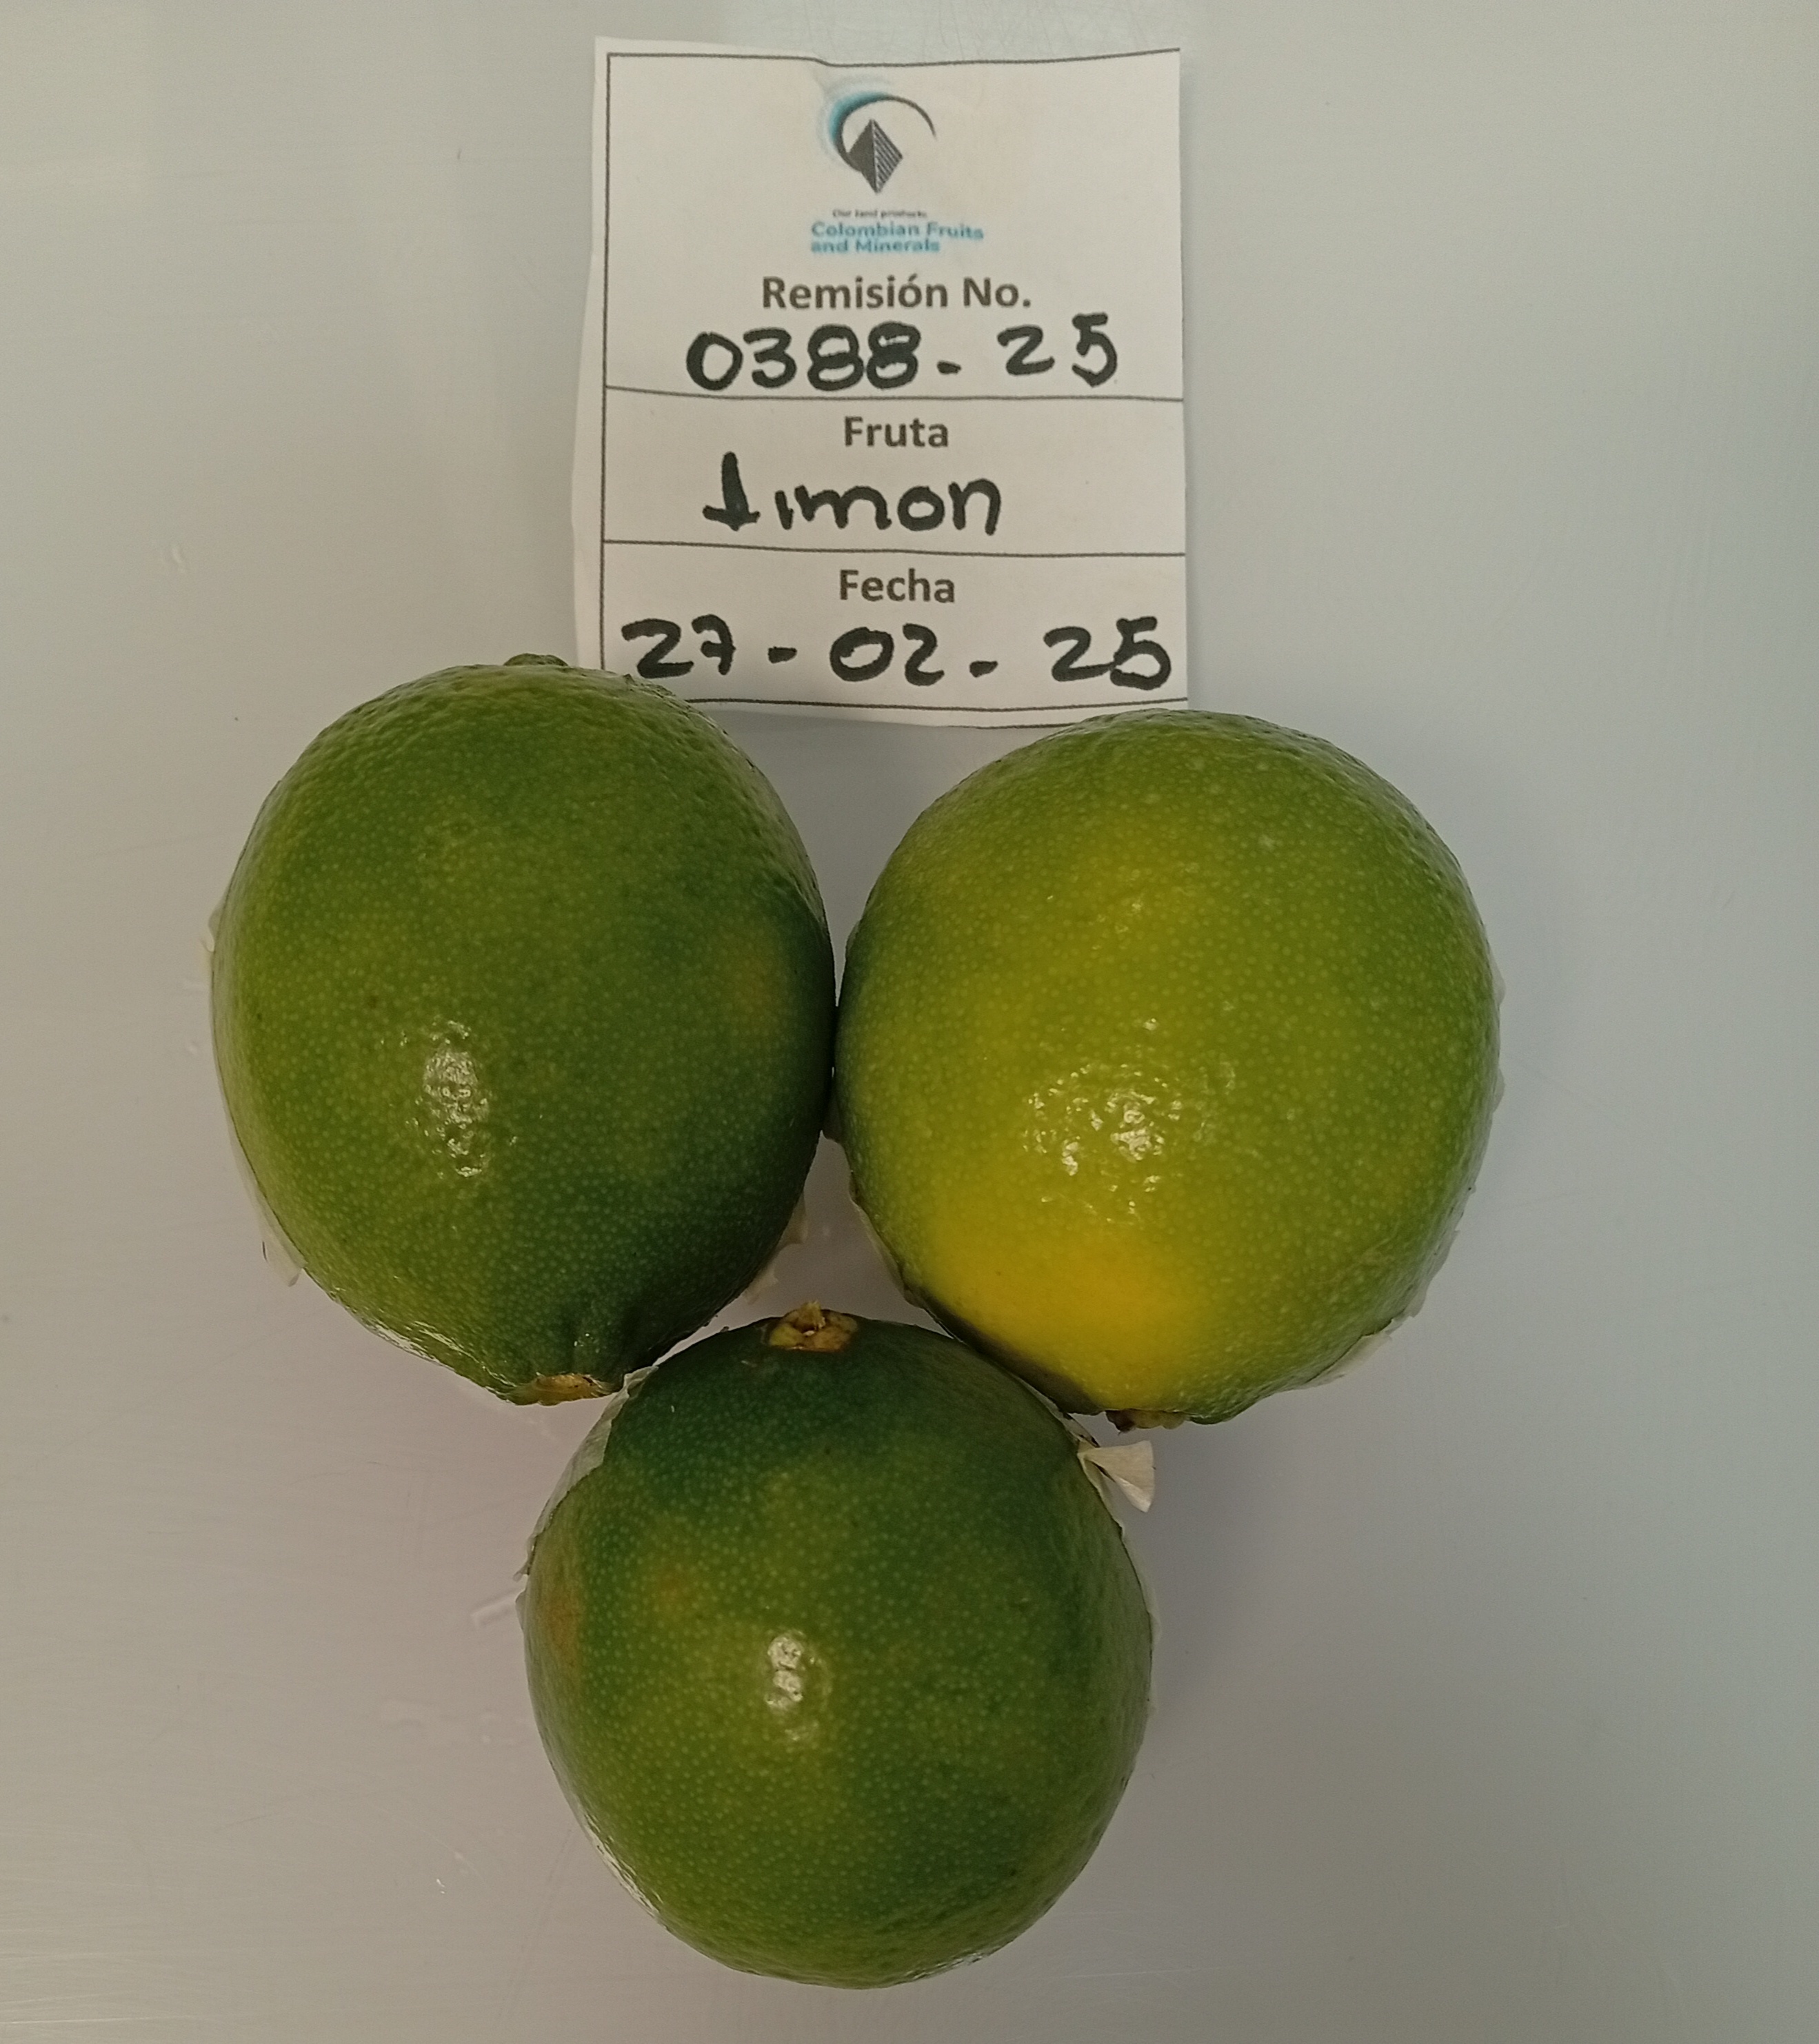 Our land products
Colombian Fruits
and Minerals
Remisión No.
0388-25
Fruta
Limon
Fecha
27-02-25